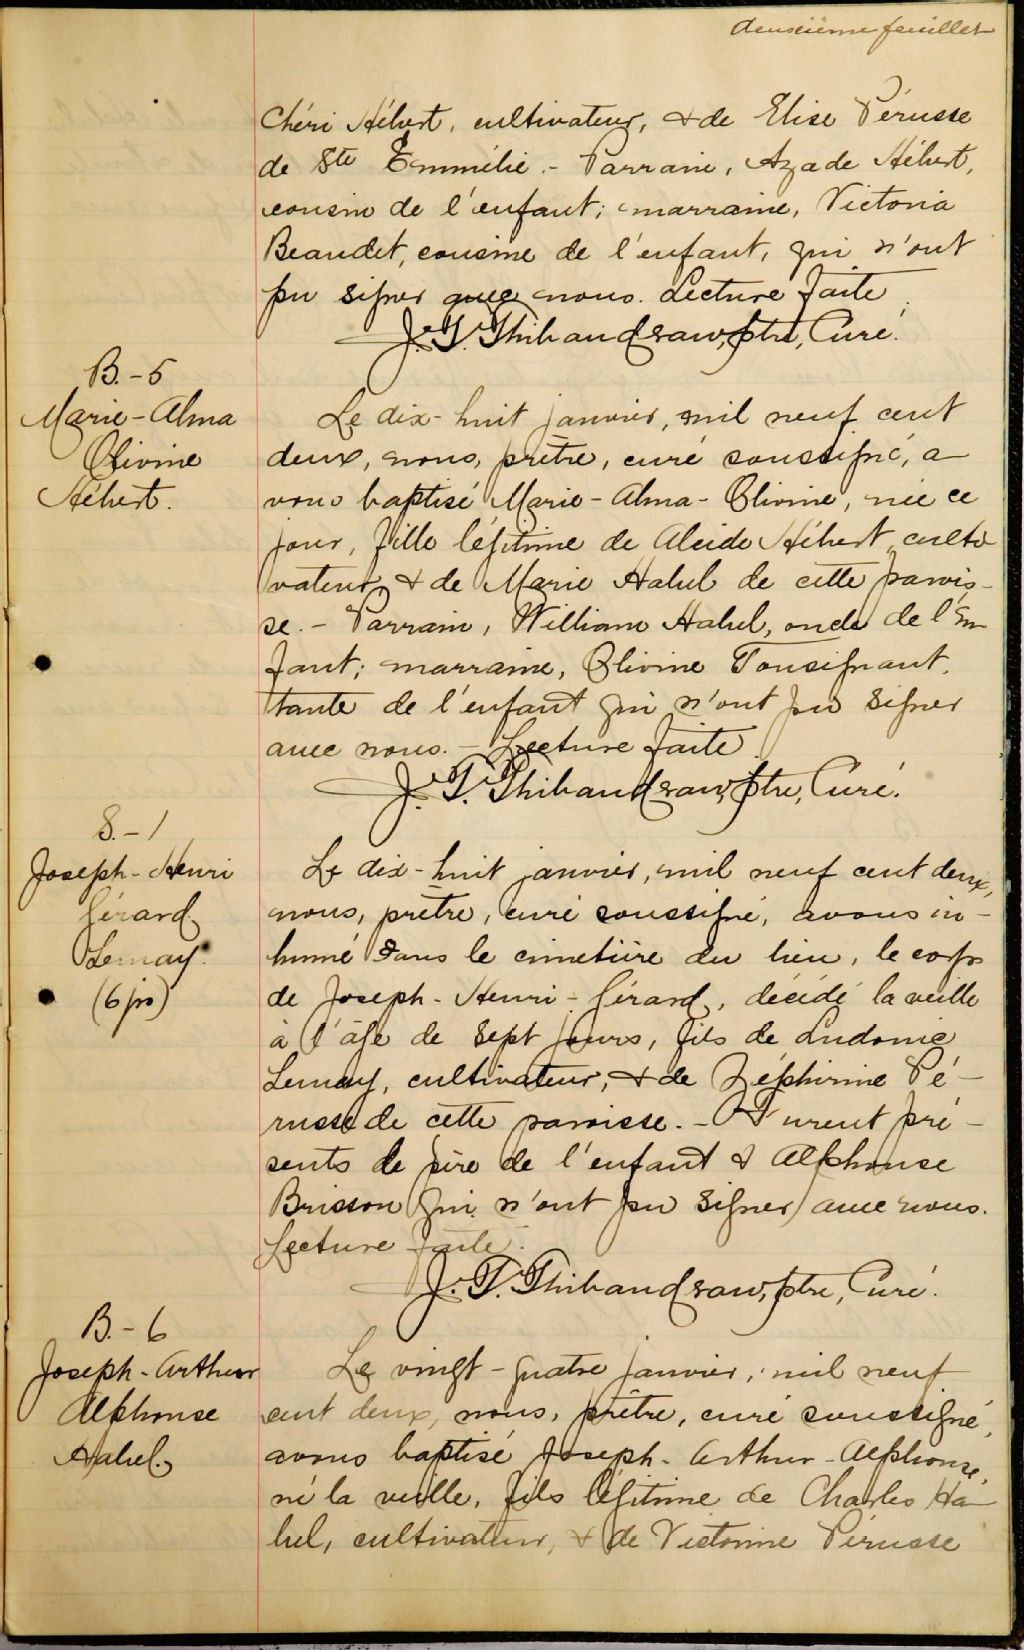 deuxième feuillet
Chéri Hébert, cultivateur, & de Elise Pérusse
de Ste Emmélie. - Parrain, Azade Hébert,
cousin de l'enfant; marraine, Victoria
Beaudet, cousine de l'enfant, qui n'ont
pu signer avec nous. Lecture faite.
J. T. Thibaud ptre, Curé.
B. - 5
Marie - Alma
Olivine
Hébert.
Le dix - huit janvier, mil neuf cent
deux, nous, prêtre, curé soussigné, a
vons baptisé Marie - Alma - Olivine, née ce
jour, fille légitime de Alcide Hébert, culti
vateur, & de Marie Hahel de cette parois -
se. - Parrain, William Hahel, oncle de l'en
fant; marraine, Olivine Tousignant,
tante de l'enfant qui n'ont pu signer
avec nous. - Lecture faite.
J. T. Thibaud ptre, Curé.
S. - 1
Joseph - Henri
Gérard
Lemay.
(6 jrs)
Le dix - huit janvier, mil neuf cent deux,
nous, prêtre, curé soussigné, avons in -
humé dans le cimetière du lieu, le corps
de Joseph - Henri - Gérard, décédé la veille
à l'âge de sept jours, fils de Ludovic
Lemay, cultivateur, & de Zéphirine Pé -
russe de cette paroisse. - Furent pré -
sents le père de l'enfant & Alphonse
Brisson qui n'ont pu signer avec nous.
Lecture faite.
J. T. Thibaud ptre, Curé.
B. - 6
Joseph - Arthur
Alphonse
Hahel.
Le vingt - quatre janvier, mil neuf
cent deux, nous, prêtre, curé soussigné,
avons baptisé Joseph - Arthur - Alphonse,
né la veille, fils légitime de Charles Ha
hel, cultivateur, & de Victorine Pérusse